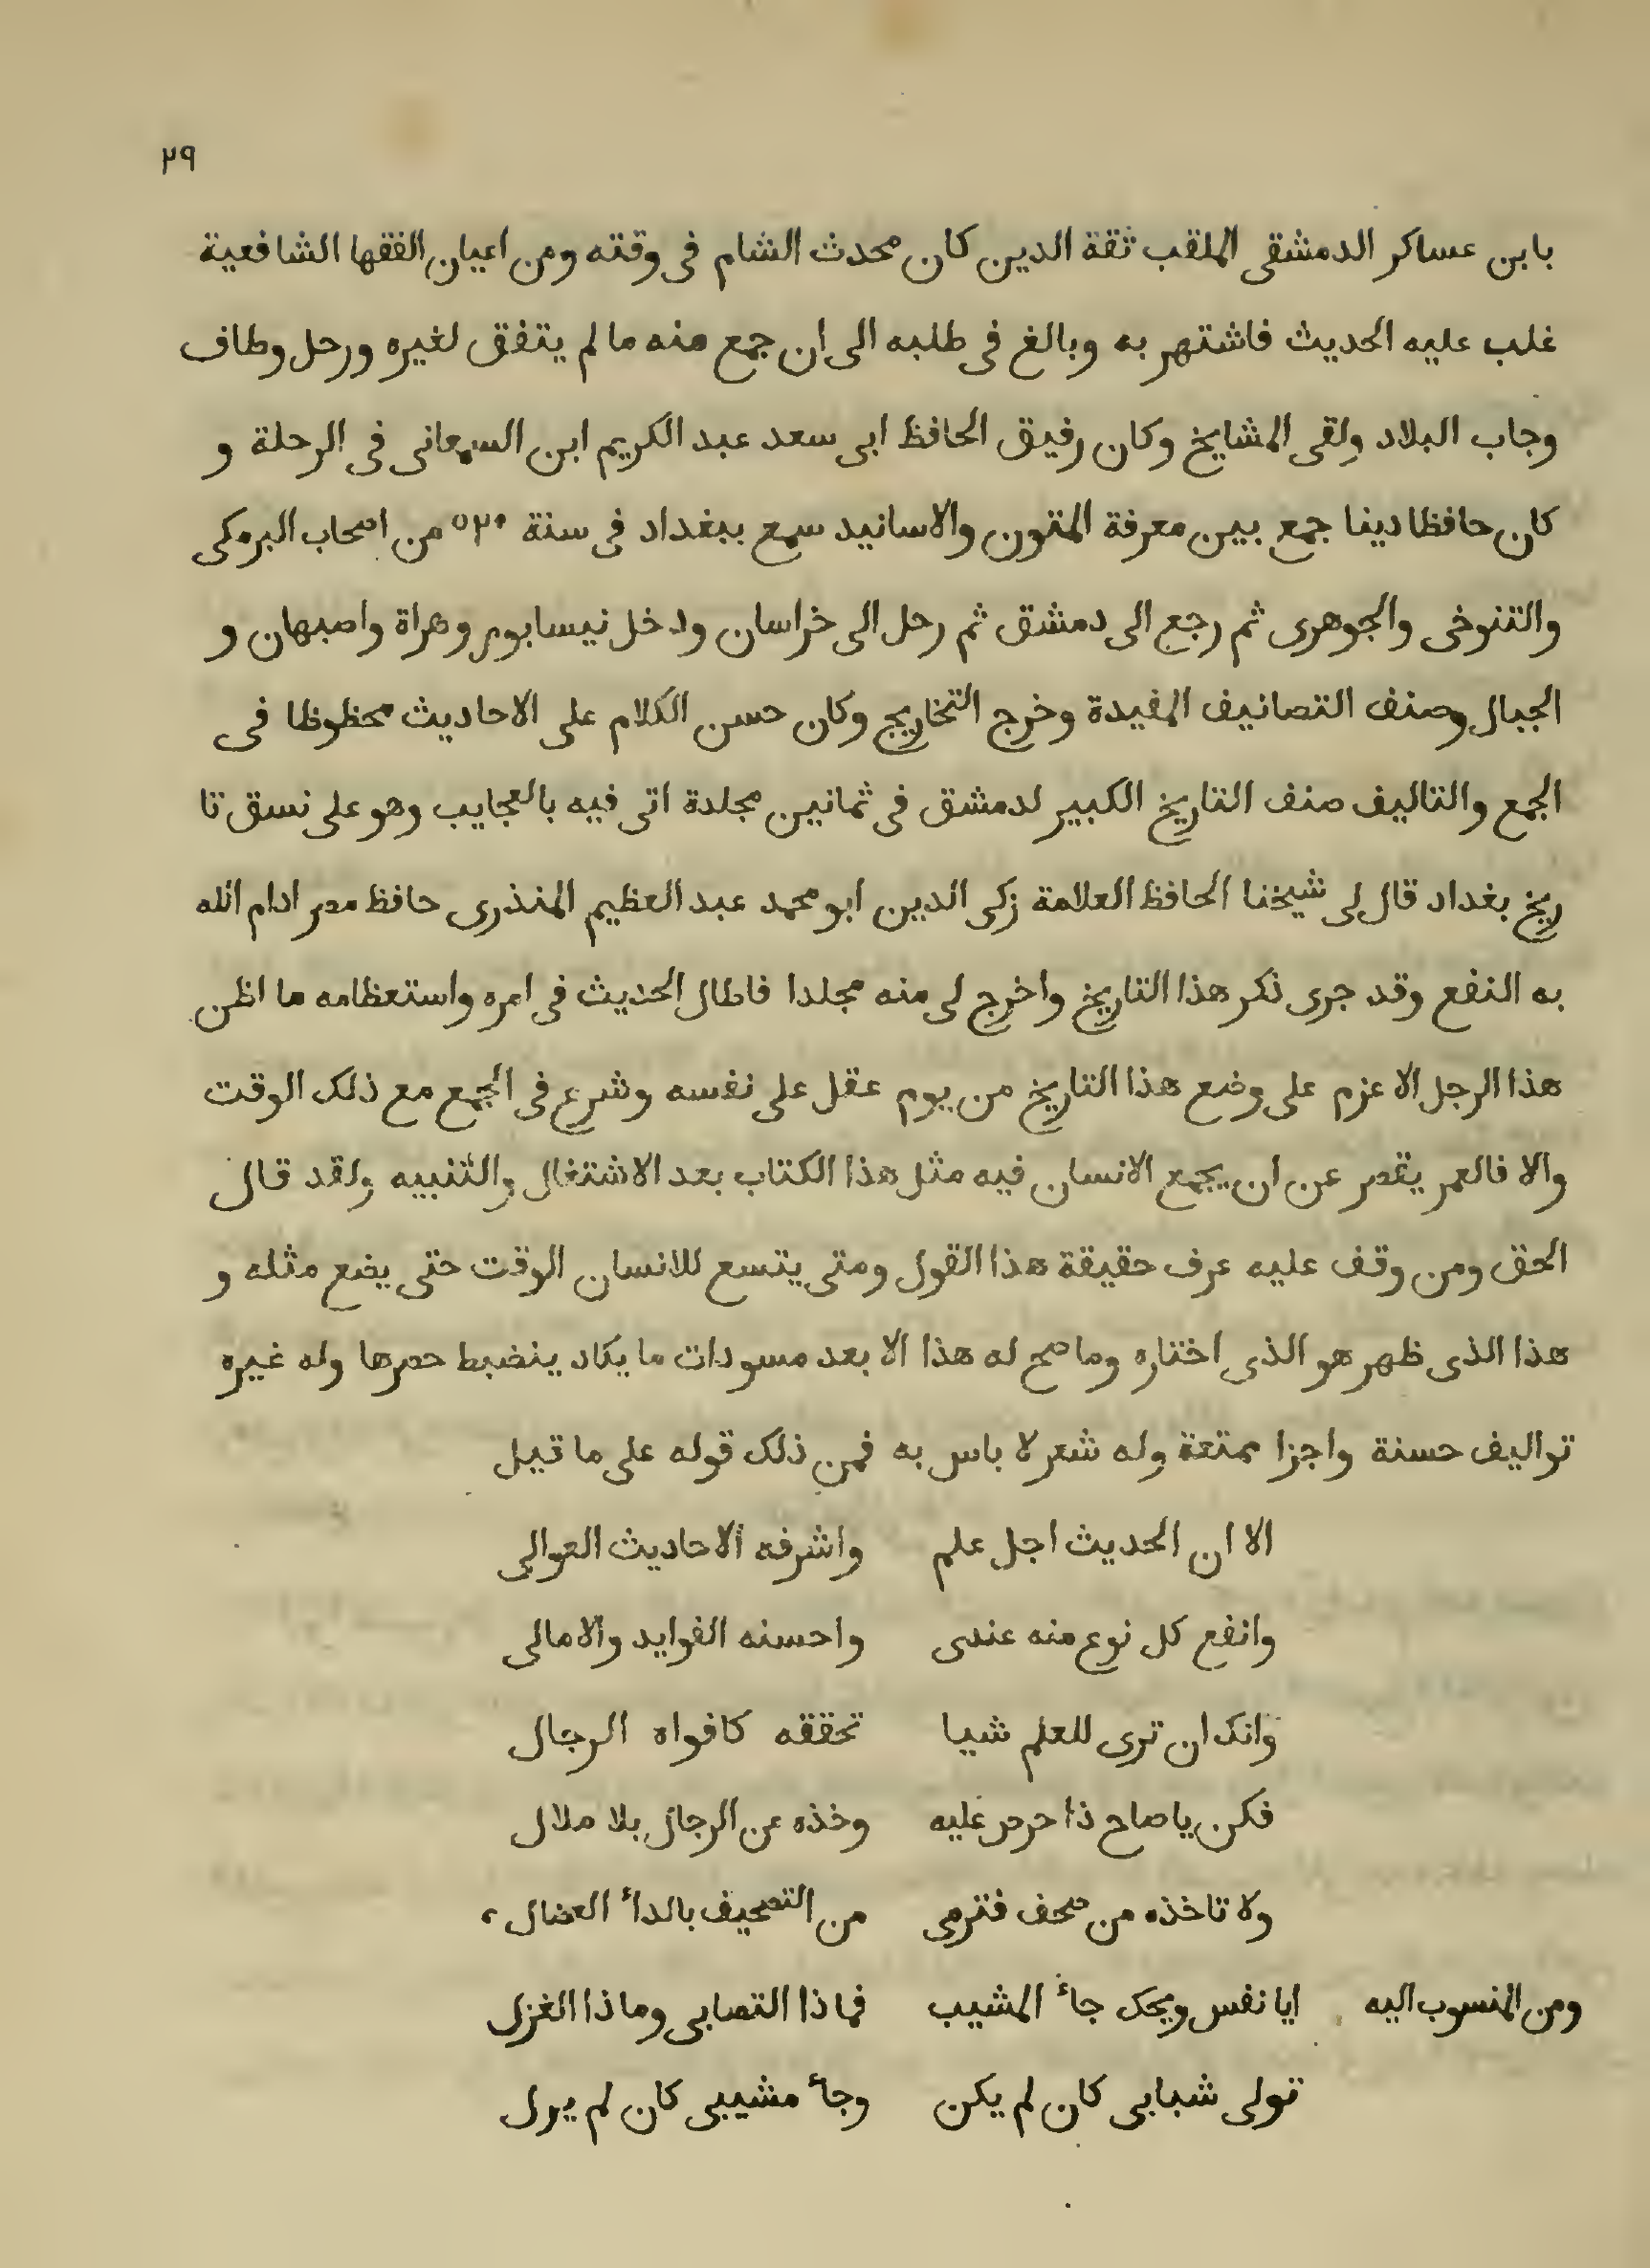 ٢٩
بابن عساكر الدمشقى الملقب ثقة الدين كان محدث الشام فى وقته ومن اعيان الفقها الشافعية
غلب عليه الحديث فاشتهر به وبالغ فى طلبه الى ان جمع منه ما لم يتفق لغيره ورحل وطاف
وجاب البلاد ولقى المشايخ وكان رفيق الحافظ ابى سعد عبد الكريم ابن السمعانى فى الرحلة و
كان حافظا دينا جمع بين معرفة المتون والاسانيد سمع ببغداد فى سنة ٥٢٠ من اصحاب البرمكى
والتنوخى والجوهرى ثم رجع الى دمشق ثم رحل الى خراسان ودخل نيسابور وهراة واصبهان و
الجبال وصنف التصانيف المفيدة وخرج التخاريج وكان حسن الكلام على الاحاديث محظوظا فى
الجمع والتاليف صنف التاريخ الكبير لدمشق فى ثمانين مجلدة اتى فيه بالعجايب وهو على نسق تا
ريخ بغداد قال لى شيخنا الحافظ العلامة زكى الدين ابو محمد عبد العظيم المنذرى حافظ مصر ادام الله
به النفع وقد جرى ذكر هذا التاريخ واخرج لى منه مجلدا فاطال الحديث فى امره واستعظامه ما اظن
هذا الرجل الا عزم على وضع هذا التاريخ من يوم عقل على نفسه وشرع فى الجمع مع ذلك الوقت
والا فالعمر يقصر عن ان يجمع الانسان فيه مثل هذا الكتاب بعد الاشتغال والتنبيه ولقد قال
الحق ومن وقف عليه عرف حقيقة هذا القول ومتى يتسع للانسان الوقت حتى يضع مثله و
هذا الذى ظهر هو الذى اختاره وما صح له هذا الا بعد مسودات ما يكاد ينضبط حصرها وله غيره
تواليف حسنة واجزا ممتعة وله شعر لا باس به فمن ذلك قوله على ما قيل
الا ان الحديث اجل علم واشرفه الاحاديث العوالى
وانفع كل نوع منه عندى واحسنه الفوايد والامالى
وانك ان ترى للعلم شيا تحققه كافواه الرجال
فكن يا صاح ذا حرص عليه وخذه عن الرجال بلا ملال
ولا تاخذه من صحف فترمى من التصحيف بالدأ العضال
ومن المنسوب اليه ايا نفس ويحك جأ المشيب فماذا التصابى وماذا الغزل
تولى شبابى كان لم يكن وجأ مشيبى كان لم يزل